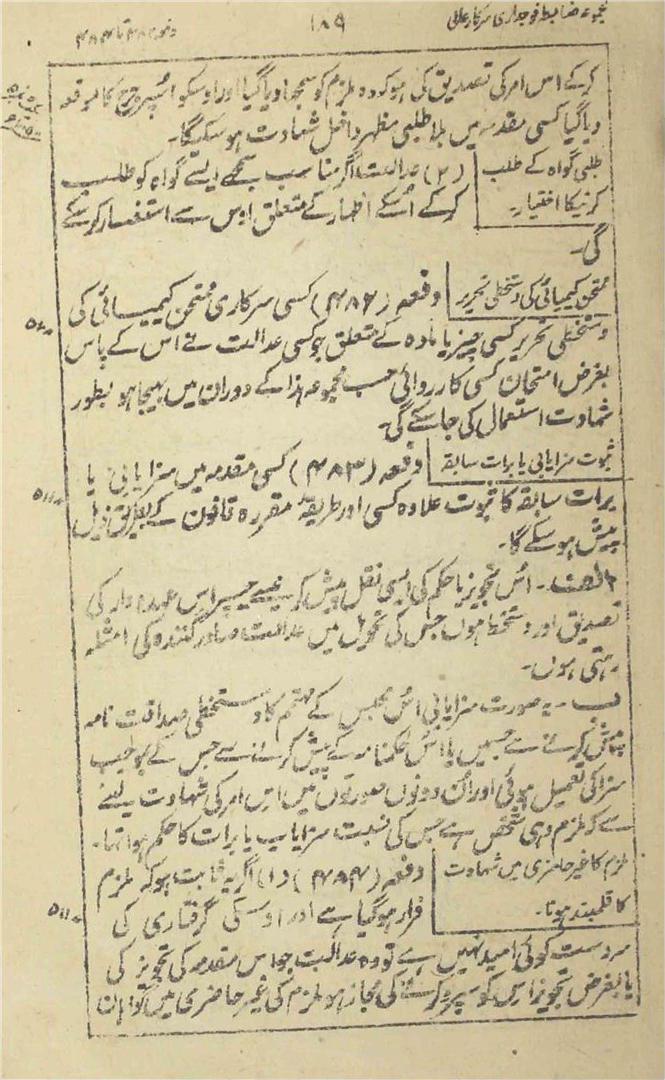 مجموعہ ضابطہ فوجداری سرکار عالی
۱۸۹
دفعہ ۴۸۲ تا ۴۸۴
کر کے اس امر کی تصدیق کی ہو کہ وہ ملزم کو سمجھا دیا گیا اور اوسکو جرح کا موقعہ
دیا گیا کسی مقدمہ میں بلا طلبی مظہر داخل شہادت ہو سکیگا۔
طلبی گواہ کے طلب
کرنیکا اختیار۔
(۲) عدالت اگر مناسب سمجھے ایسے گواہ کو طلب
کر کے اُسکے اظہار کے متعلق اوس سے استفسار کر سکے
گی۔
ممتحن کیمیائی کی دستخطی تحریر
دفعہ (۴۸۲) کسی سرکاری ممتحن کیمیائی کی
دستخطی تحریر کسی چیز یا مادہ کے متعلق جو کسی عدالت نے اس کے پاس
بغرض امتحان کسی کارروائی حسب مجموعہ ہذا کے دوران میں بھیجا ہو بطور
شہادت استعمال کی جا سکے گی۔
۵۱۰
ثبوت سزایابی یا برات سابقہ
دفعہ (۴۸۳) کسی مقدمہ میں سزایابی یا
برات سابقہ کا ثبوت علاوہ کسی اور طریقہ مقررہ قانون کے بطریق ذیل
پیش ہو سکے گا۔
۵۱۱
الف۔ اُس تجویز یا حکم کی ایسی نقل پیش کرنیسے جسپر اس عہدہ دار کی
تصدیق اور دستخط ہوں جس کی تحویل میں عدالت صادر کنندہ کی امثلہ
رہتی ہوں۔
ب۔ بہ صورت سزایابی اُس محبس کے مہتمم کا دستخطی صداقت نامہ
پیش کرنے سے جسمیں یا اُس حکمنامہ کے پیش کرنے سے جس کے بموجب
سزا کی تعمیل ہوئی اور اُن دونوں صورتوں میں اس امر کی شہادت لینے
سے کہ ملزم وہی شخص ہے جس کی نسبت سزایاب یا برات کا حکم ہوا تھا۔
ملزم کا غیر حاضری میں شہادت
کا قلمبند ہونا۔
دفعہ (۴۸۴) (۱) اگر یہ ثابت ہو کہ ملزم
فرار ہو گیا ہے اور اوسکی گرفتاری کی
۵۱۲
سردست کوئی امید نہیں ہے تو وہ عدالت جو اس مقدمہ کی تجویز کی
یا بغرض تجویز اس کو سپرد کرنے کی مجاز ہو ملزم کی غیر حاضری میں گواہان